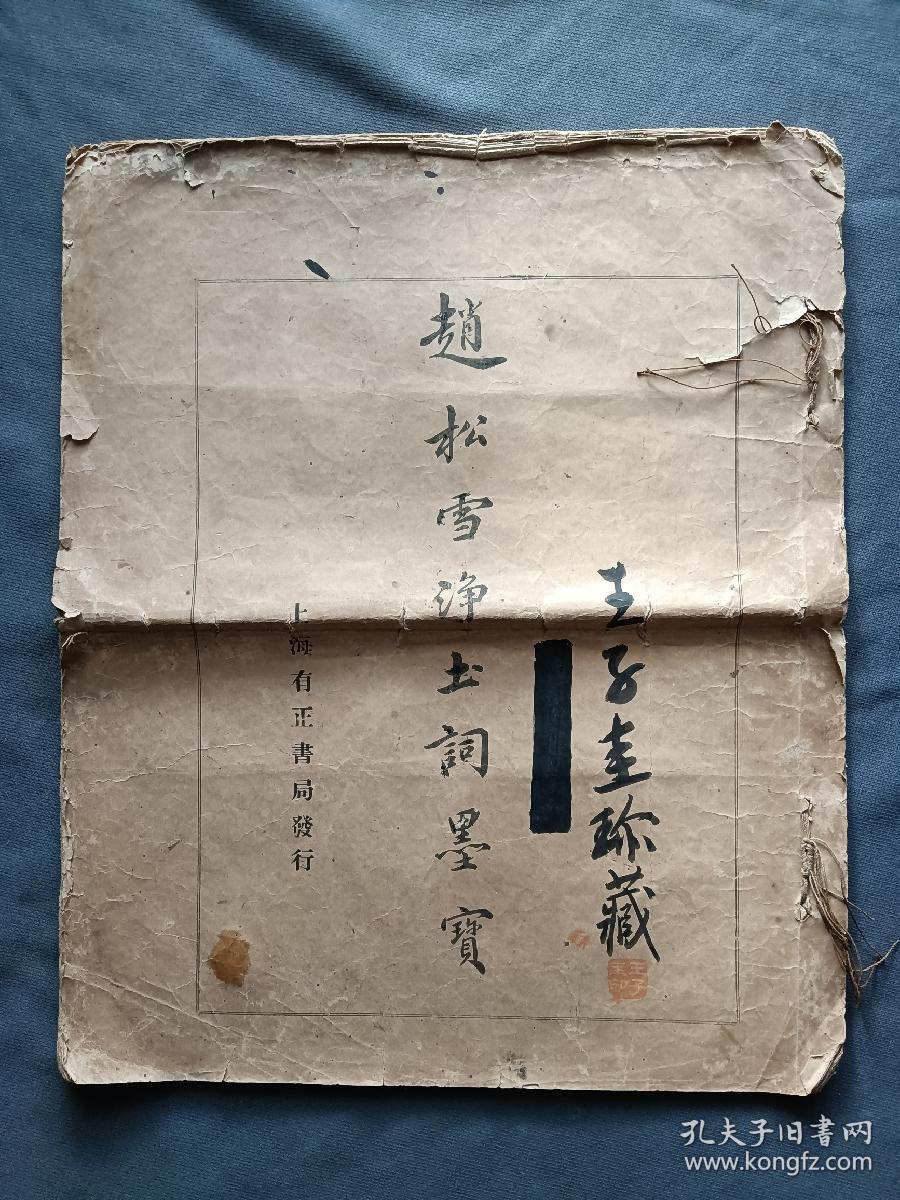 王子圭珍藏
趙松雪淨土詞墨寶
上海有正書局發行
孔夫子旧书网
www.kongfz.com